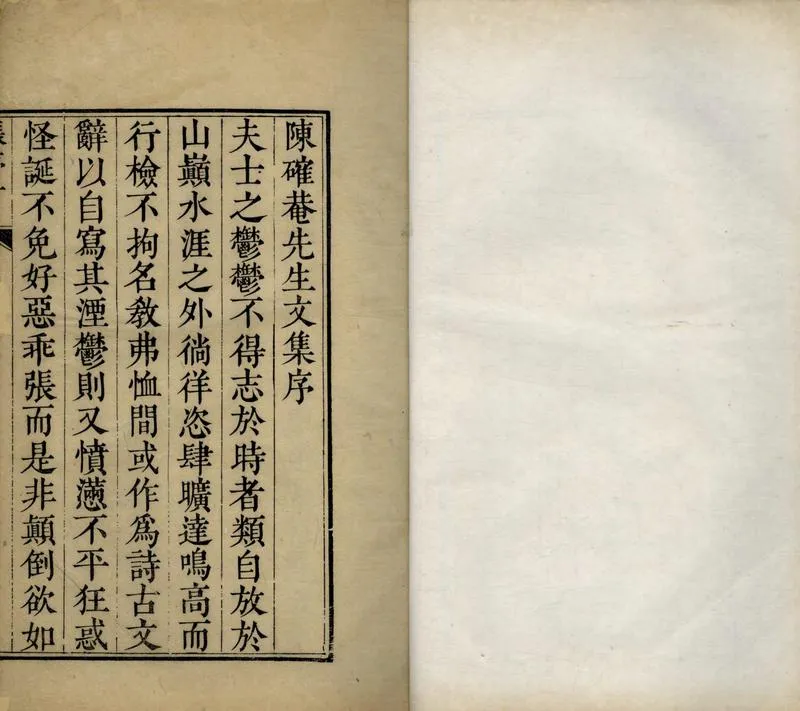 陳確菴先生文集序
夫士之鬱鬱不得志於時者類自放於
山巔水涯之外徜徉恣肆曠達鳴高而
行檢不拘名敎弗恤間或作爲詩古文
辭以自寫其湮鬱則又憤懣不平狂惑
怪誕不免好惡乖張而是非顛倒欲如